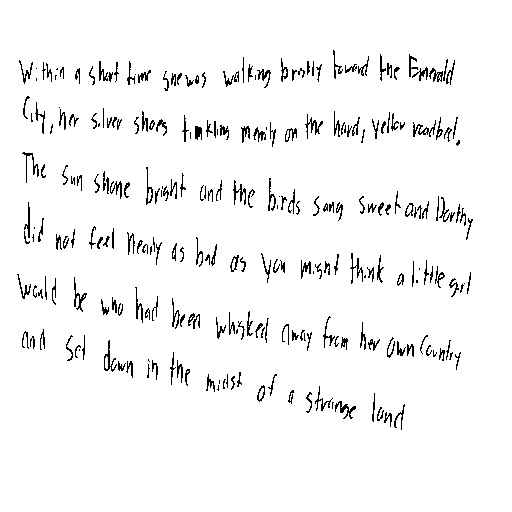 Within a short time she was walking briskly toward the Emerald
City, her silver shoes tinkling merrily on the hard, yellow roadbed.
The sun shone bright and the birds sang sweet and Dorthy
did not feel nearly as bad as you might think a little girl
would be who had been whisked away from her own country
and set down in the midst of a strange land